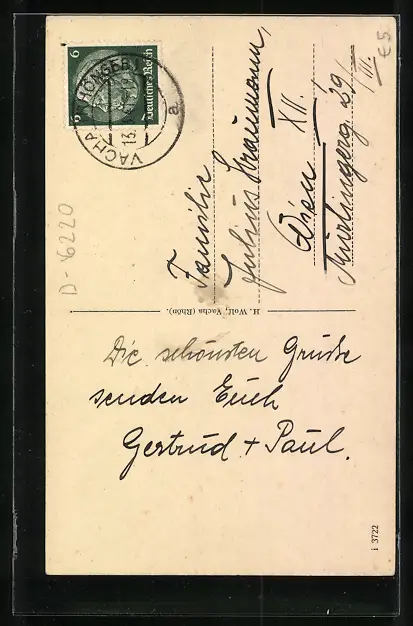 6
6
Deutsches Reich
VACHA
13.
a
Familie
Julius
Wien XII.
39/
III.
€5
D-6220
H. Wolf, Vacha (Rhön).
Die schönsten Grüße
senden Euch
Gertrud + Paul.
i 3722